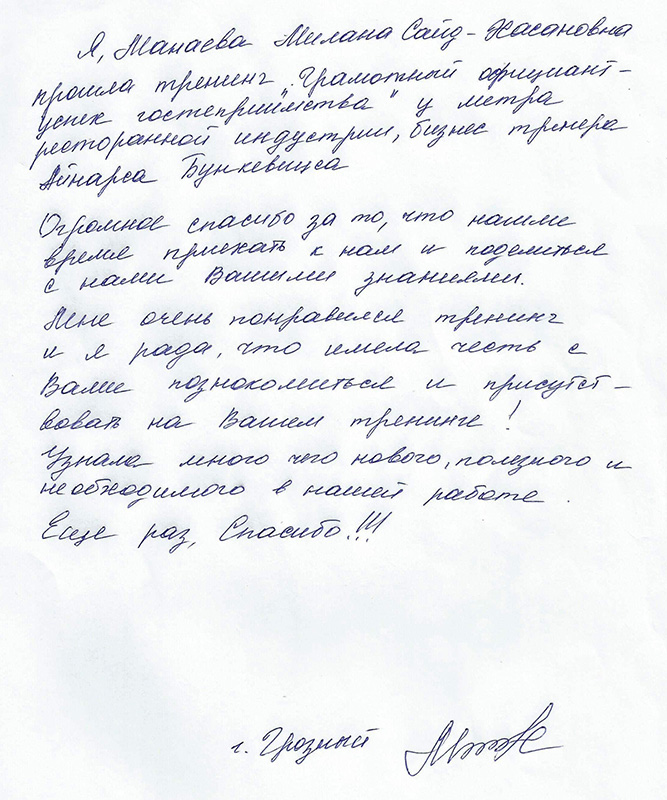 Я, Манаева Милана Сайд-Хасановна
прошла тренинг „Грамотный официант-
успех гостеприимства" у метра
ресторанной индустрии, бизнес тренера
Айнарса Бункевицса
Огромное спасибо за то, что нашли
время приехать к нам и поделиться
с нами Вашими знаниями.
Мне очень понравился тренинг
и я рада, что имела честь с
Вами познакомиться и присутст-
вовать на Вашем тренинге!
Узнала много чего нового, полезного и
необходимого в нашей работе.
Еще раз, Спасибо!!!
г. Грозный